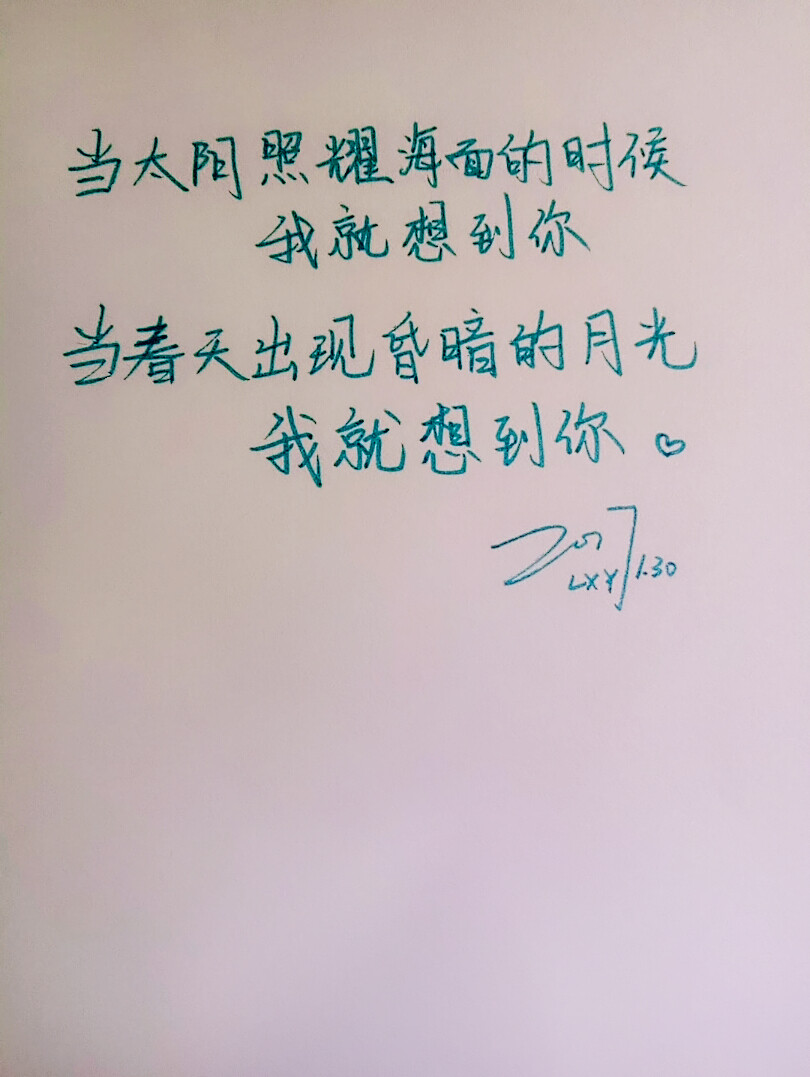 当太阳照耀海面的时候
我就想到你
当春天出现昏暗的月光
我就想到你♡
2017 1.30
LXY